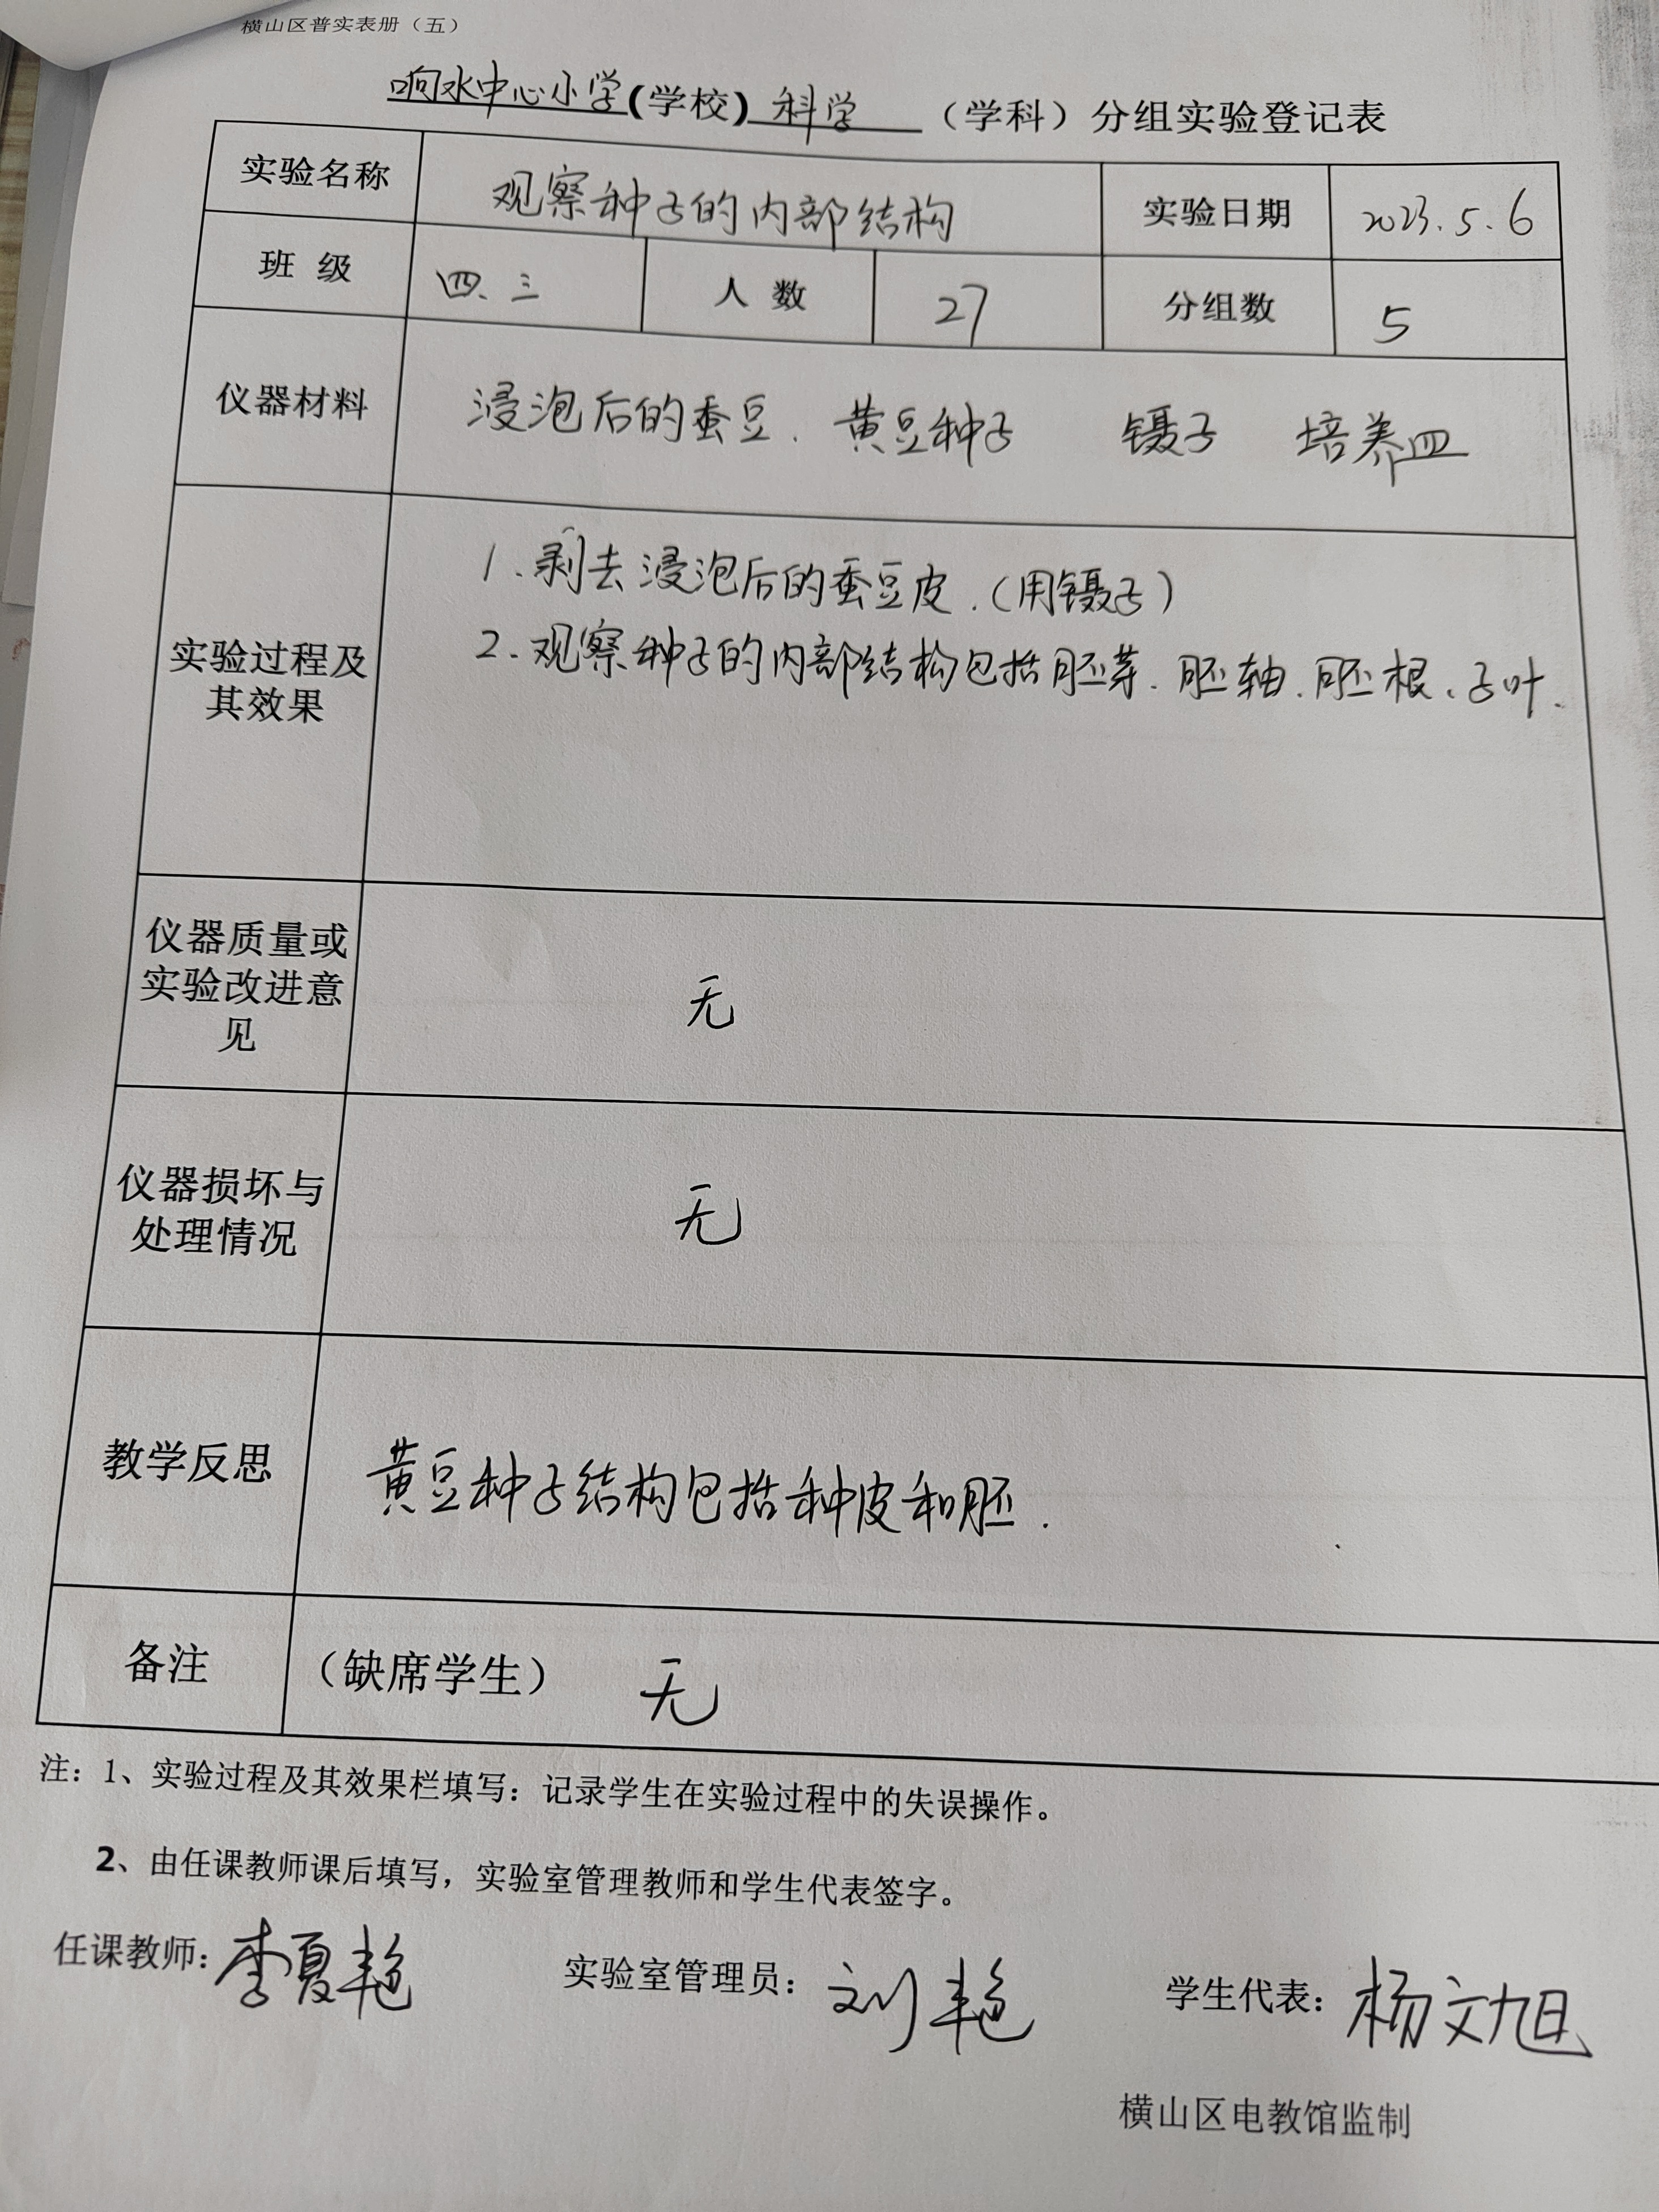 横山区普实表册（五）
响水中心小学(学校)科学（学科）分组实验登记表
实验名称 观察种子的内部结构 实验日期 2023.5.6
班 级 四、三 人 数 27 分组数 5
仪器材料 浸泡后的蚕豆、黄豆种子 镊子 培养皿
1.剥去浸泡后的蚕豆皮.(用镊子)
2.观察种子的内部结构包括胚芽.胚轴.胚根.子叶.
实验过程及
其效果
仪器质量或
实验改进意
见
无
仪器损坏与
处理情况
无
教学反思 黄豆种子结构包括种皮和胚.
备注 （缺席学生） 无
注：1、实验过程及其效果栏填写：记录学生在实验过程中的失误操作。
2、由任课教师课后填写，实验室管理教师和学生代表签字。
任课教师：李夏艳 实验室管理员：刘艳 学生代表：杨文旭
横山区电教馆监制